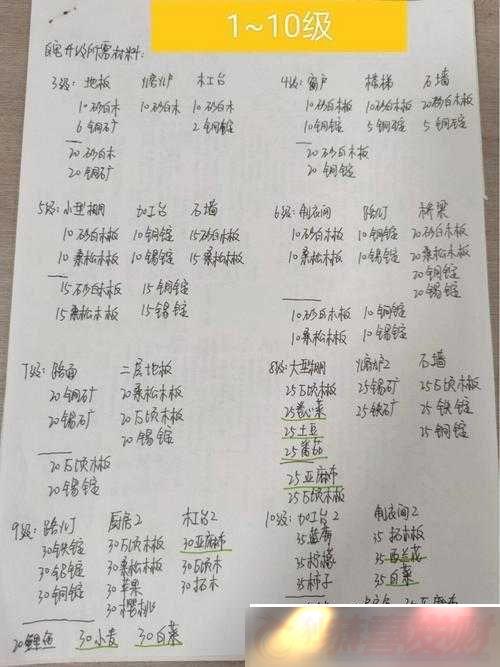 1~10级
自宅升级所需材料:
3级: 地板 熔炉 木工台
10砂白木 10砂白木 10砂白木
6铜矿 2铜锭
20砂白木
20铜矿
4级: 窗户 楼梯 石墙
10砂白木板 10砂白木板 20砂白木板
10铜锭 5铜锭 5铜锭
20砂白木板
20铜锭
5级: 小型棚 加工台 石墙
10砂白木板 10铜锭 15砂白木板
10桑松木板 10锡锭 15桑松木板
15砂白木板 15铜锭
15桑松木板 15锡锭
6级: 制衣间 路灯 桥梁
10砂白木板 10铜锭 20砂白木板
10桑松木板 10锡锭 20桑松木板
20铜锭
20锡锭
10砂白木板 10铜锭
10桑松木板 10锡锭
7级: 路面 二层地板
20铜矿 20桑松木板
20锡矿 20瓦顷木板
20锡锭
20瓦顷木板
20锡锭
8级: 大型棚 熔炉2 石墙
25瓦顷木板 25锡矿 25瓦顷木板
25卷心菜 25铁矿 25铁锭
25土豆 25铜锭
25番茄
25亚麻布
25瓦顷木板
9级: 路灯 厨房2 木工台2
30铁锭 30瓦顷木板 30亚麻布
30铝锭 30桑松木板 30瓦顷木
30铜锭 30苹果 30拓木
30樱桃
20鲤鱼 30小麦 30白菜
10级: 加工台2 制衣间2
35蓝莓 35拓木板
35柠檬 35西兰花
35柿子 35白菜
亚麻布